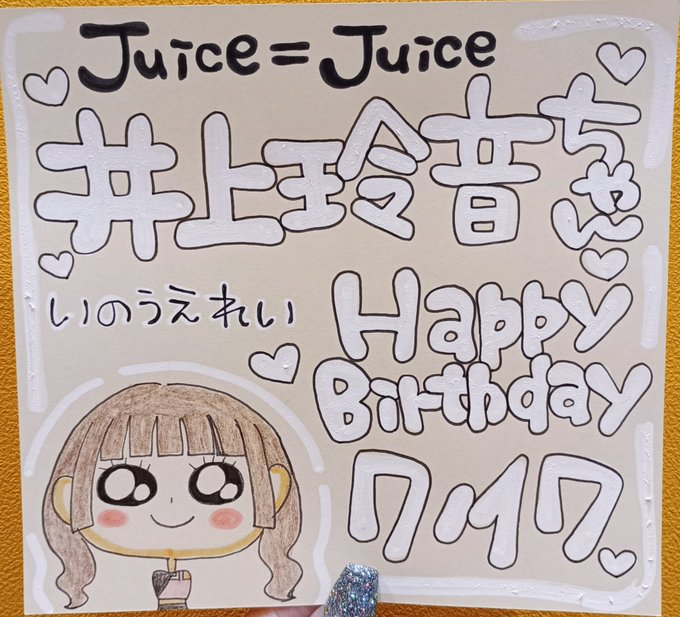 Juice=Juice
井上玲音ちゃん
いのうえれい
Happy
Birthday
7/17